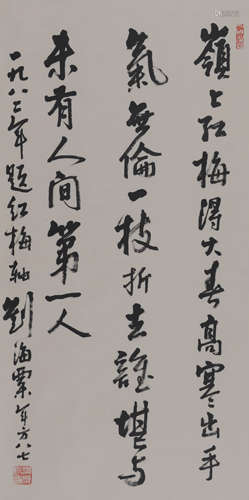 嶺上红梅得大春高寒出手
氣無倫一枝折去誰堪与
未有人间第一人
一九八二年題红梅轴劉海粟年方八七